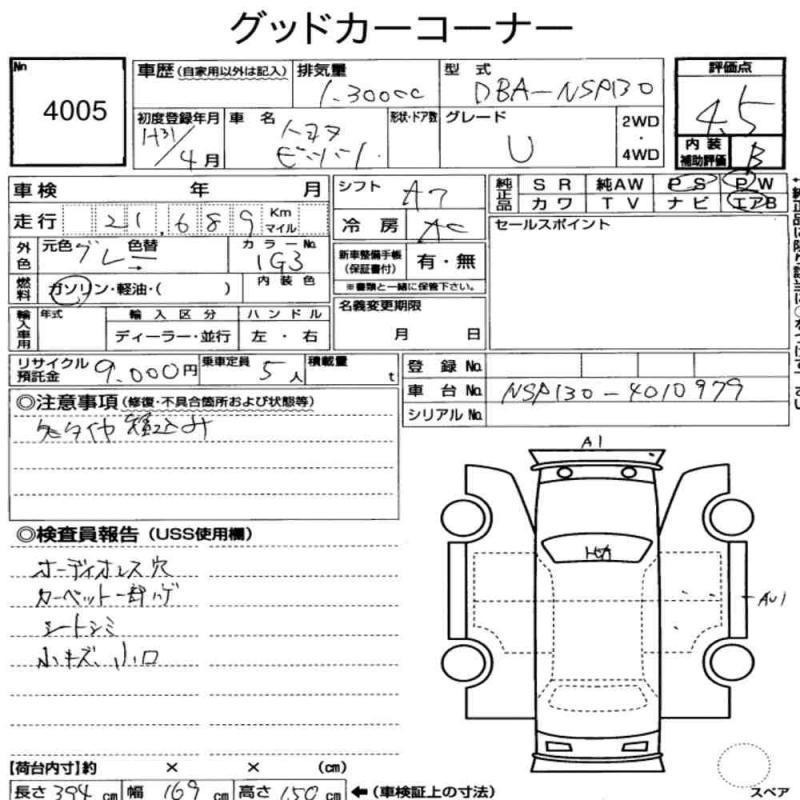 グッドカーコーナー
No 4005
車歴 (自家用以外は記入) 排気量 1.300cc 型式 DBA-NSP130 評価点 4.5
初度登録年月 H31/4月 車名 トヨタ 形状・ドア数 グレード U 2WD・4WD
内装補助評価 B
車検 年 月 シフト AT 純正品 SR 純AW PS PW
走行 21,689 Km マイル 冷房 AC カワ TV ナビ エアB
外色 元色 グレー 色替 カラーNo. 1G3 新車整備手帳(保証書付) 有・無 セールスポイント
燃料 ガソリン・軽油・( ) 内装色 ※書類と一緒に保管下さい。
輸入車用 年式 輸入区分 ハンドル 名義変更期限
ディーラー・並行 左・右 月 日
リサイクル預託金 9,000円 乗車定員 5人 積載量 t 登録No.
車台No. NSP130-4010979
シリアルNo.
◎注意事項 (修復・不具合箇所および状態等)
積込み
A1
◎検査員報告 (USS使用欄)
オーディオレス穴
カーペット一部ハゲ
シートシミ
小キズ、小凹
AU1
【荷台内寸】約 × × (cm)
長さ 394 cm 幅 169 cm 高さ 150 cm ←(車検証上の寸法)
スペア